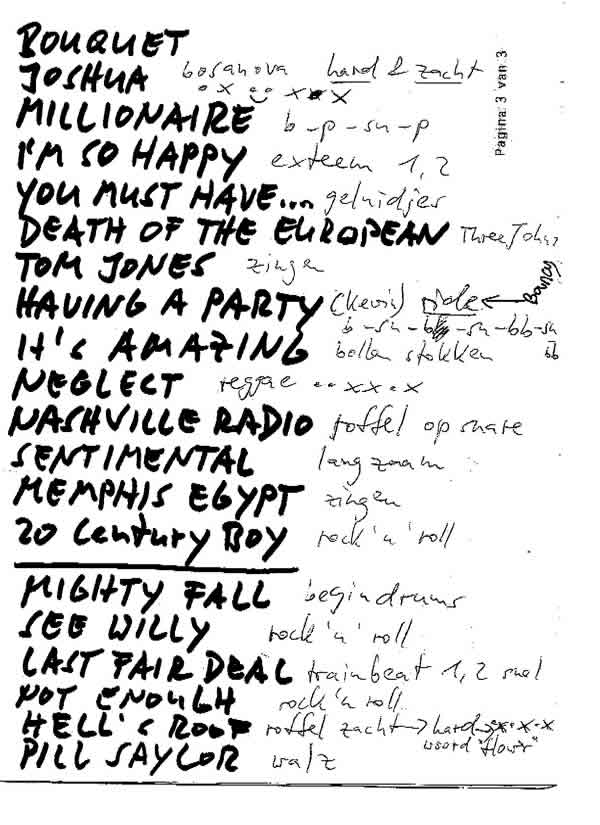 Pagina 3 van 3
BOUQUET
JOSHUA bosanova hard & zacht
MILLIONAIRE b-p-sn-p
I'M SO HAPPY exteem 1,2
YOU MUST HAVE... geluidjes
DEATH OF THE EUROPEAN Three Johns
TOM JONES zingen
HAVING A PARTY (kevin) ride ← Bouncy
b-sn-bb-sn-bb-sn
IT'S AMAZING bollen stokken bb
NEGLECT reggae ••xx•x
NASHVILLE RADIO roffel op snare
SENTIMENTAL langzaam
MEMPHIS EGYPT zingen
20 Century Boy rock 'n' roll
MIGHTY FALL begin drums
SEE WILLY rock 'n' roll
LAST FAIR DEAL trainbeat 1,2 snel
NOT ENOUGH rock 'n roll
HELL'S ROOF roffel zacht → hard → x•x•x
woord "flour"
PILL SAYLOR walz